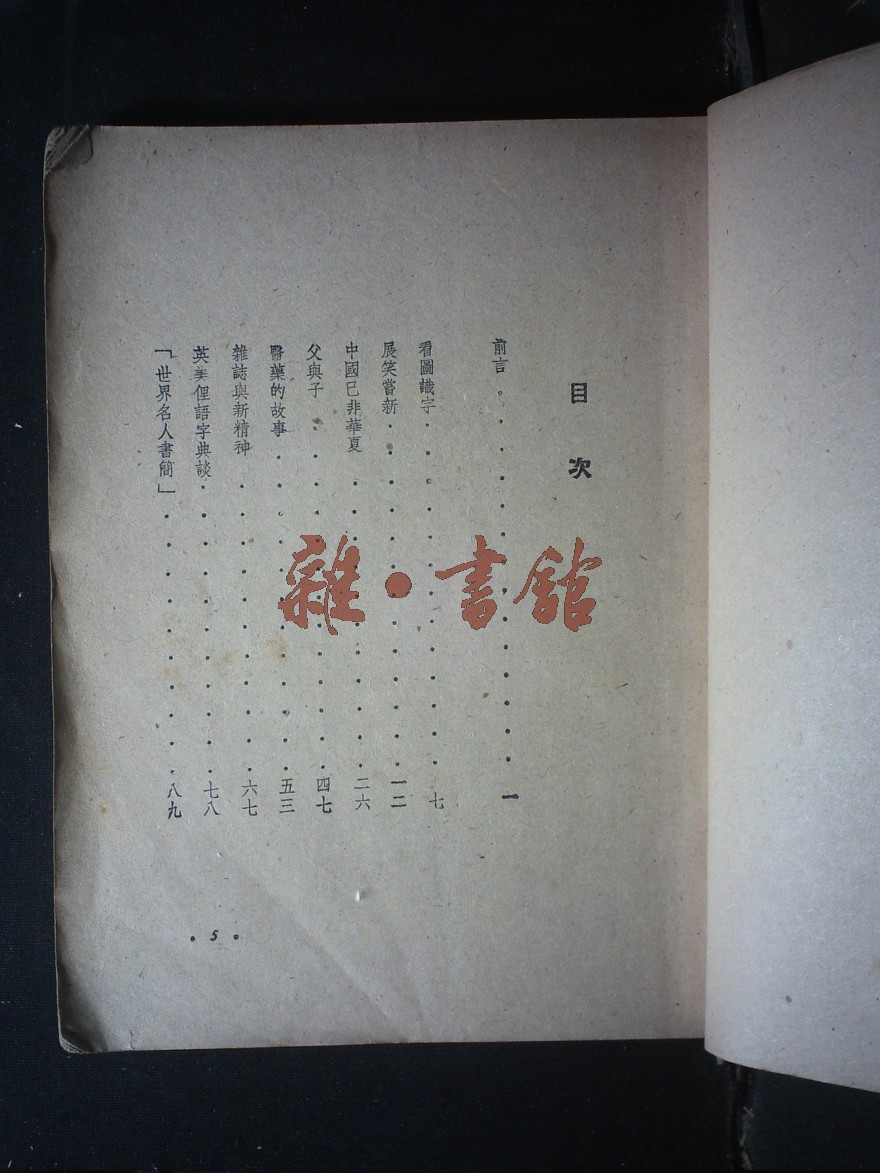 目次
前言 一
看圖識字 七
展笑嘗新 一二
中國已非華夏 二六
父與子 四七
醫藥的故事 五三
雜誌與新精神 六七
英美俚語字典談 七八
「世界名人書簡」 八九
• 5 •
雜•書館